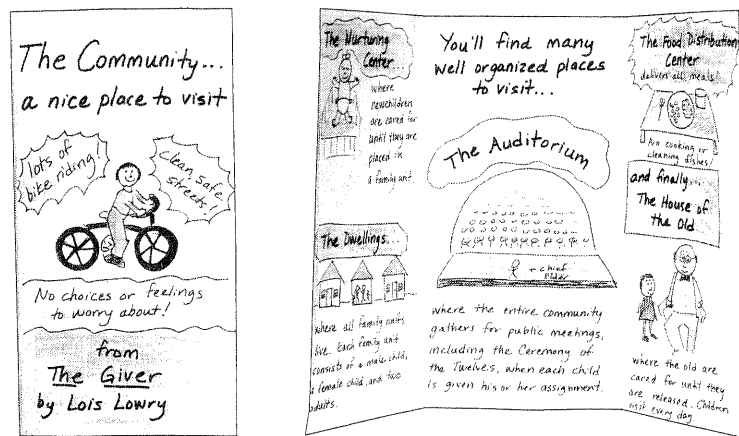 The Community...
a nice place to visit
lots of
bike riding!
clean, safe
streets.
No choices or feelings
to worry about!
from
The Giver
by Lois Lowry
The Nurturing
Center...
where
newchildren
are cared for
until they are
placed in
a family unit.
The Dwellings...
where all family units
live. Each family unit
consists of a male child,
a female child, and two
adults.
You'll find many
well organized places
to visit...
The Auditorium
chief
Elder
where the entire community
gathers for public meetings,
including the Ceremony of
the Twelves, when each child
is given his or her assignment.
The Food Distribution
Center
delivers all meals!
No cooking or
cleaning dishes!
and finally...
The House of
the Old
where the old are
cared for until they
are released. Children
visit every day.